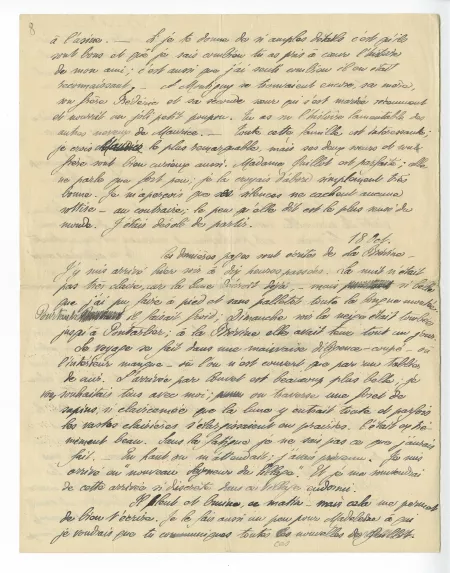 8
à l'aise. — Si je te donne de si amples détails c'est qu'ils
sont bons et que je sais combien tu as pris à cœur l'histoire
de mon ami; c'est aussi que j'ai senti combien il en était
reconnaissant. — A Montigny se trouvaient encore, sa mère,
son frère Frédéric et sa seconde sœur qui s'est mariée récemment
et nourrit un joli petit poupon. Tu as su l'histoire lamentable des
autres de Maurice. — Toute cette famille est intéressante;
je crois Maurice le plus remarquable, mais ses deux sœurs et son
frère sont bien curieux aussi. Madame Quillot est parfaite; elle
ne parle que fort peu; je la croyais d'abord simplement très
bonne. Je m'aperçois que ses silences ne cachent aucune
sottise — au contraire; le peu qu'elle dit est le plus sensé du
monde. J'étais désolé de partir.
18 Oct.
Les dernières pages sont écrites de la Brévine —
J'y suis arrivé hier soir à dix heures passées. La nuit n'était
pas très claire, car la lune décroît déjà, — mais si belle
que j'ai pu faire à pied et sans paletot toute la longue montée.
Pourtant il faisait froid; Dimanche soir la neige était tombée
jusqu'à Pontarlier; à la Brévine elle avait tenu tout un jour.
Le voyage se fait dans une mauvaise diligence-coupé — où
l'intérieur manque — où l'on n'est couvert que par un tablier
de cuir. L'arrivée par Couvet est beaucoup plus belle; je
vous souhaitais tous avec moi; on traverse une forêt de
sapins, si clairsemée que la lune y entrait toute et parfois
les vastes clairières s'élargissaient en prairies. C'était extrê-
mement beau. Sans la fatigue je ne sais pas ce que j'aurais
fait. — En haut on m'attendait; j'avais prévenu. Je suis
arrivé en "nouveau seigneur du village". Et je me souviendrai
de cette arrivée si discrète dans ce village endormi.
Il pleut et bruine, ce matin — mais cela me permet
de bien t'écrire. Je le fais aussi un peu pour Madeleine à qui
je voudrais que tu communiques toutes les nouvelles des Quillot.